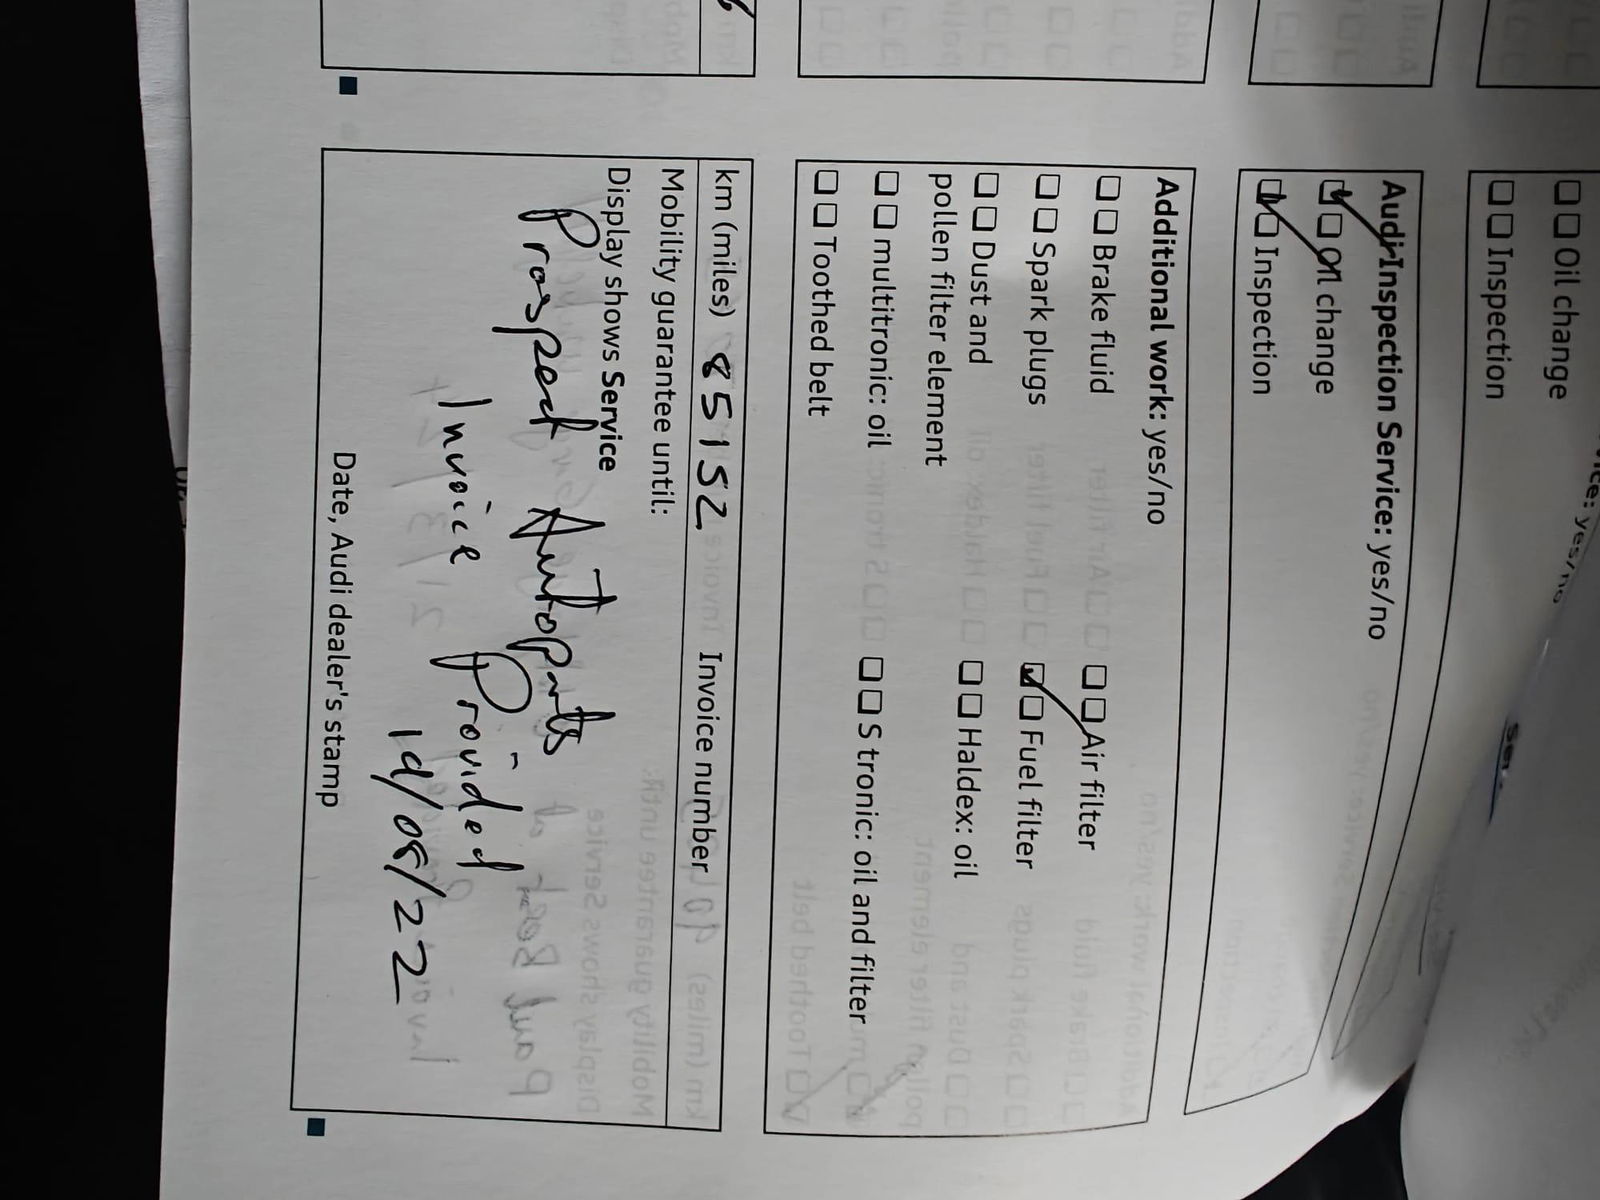 Oil change
Inspection
Audi Inspection Service: yes/no
Oil change
Inspection
Additional work: yes/no
Brake fluid
Air filter
Spark plugs
Fuel filter
Dust and
pollen filter element
Haldex: oil
multitronic: oil
S tronic: oil and filter
Toothed belt
km (miles) 85152 Invoice number
Mobility guarantee until:
Display shows Service
Prospect Autoparts
Invoice Provided
19/08/22
Date, Audi dealer's stamp